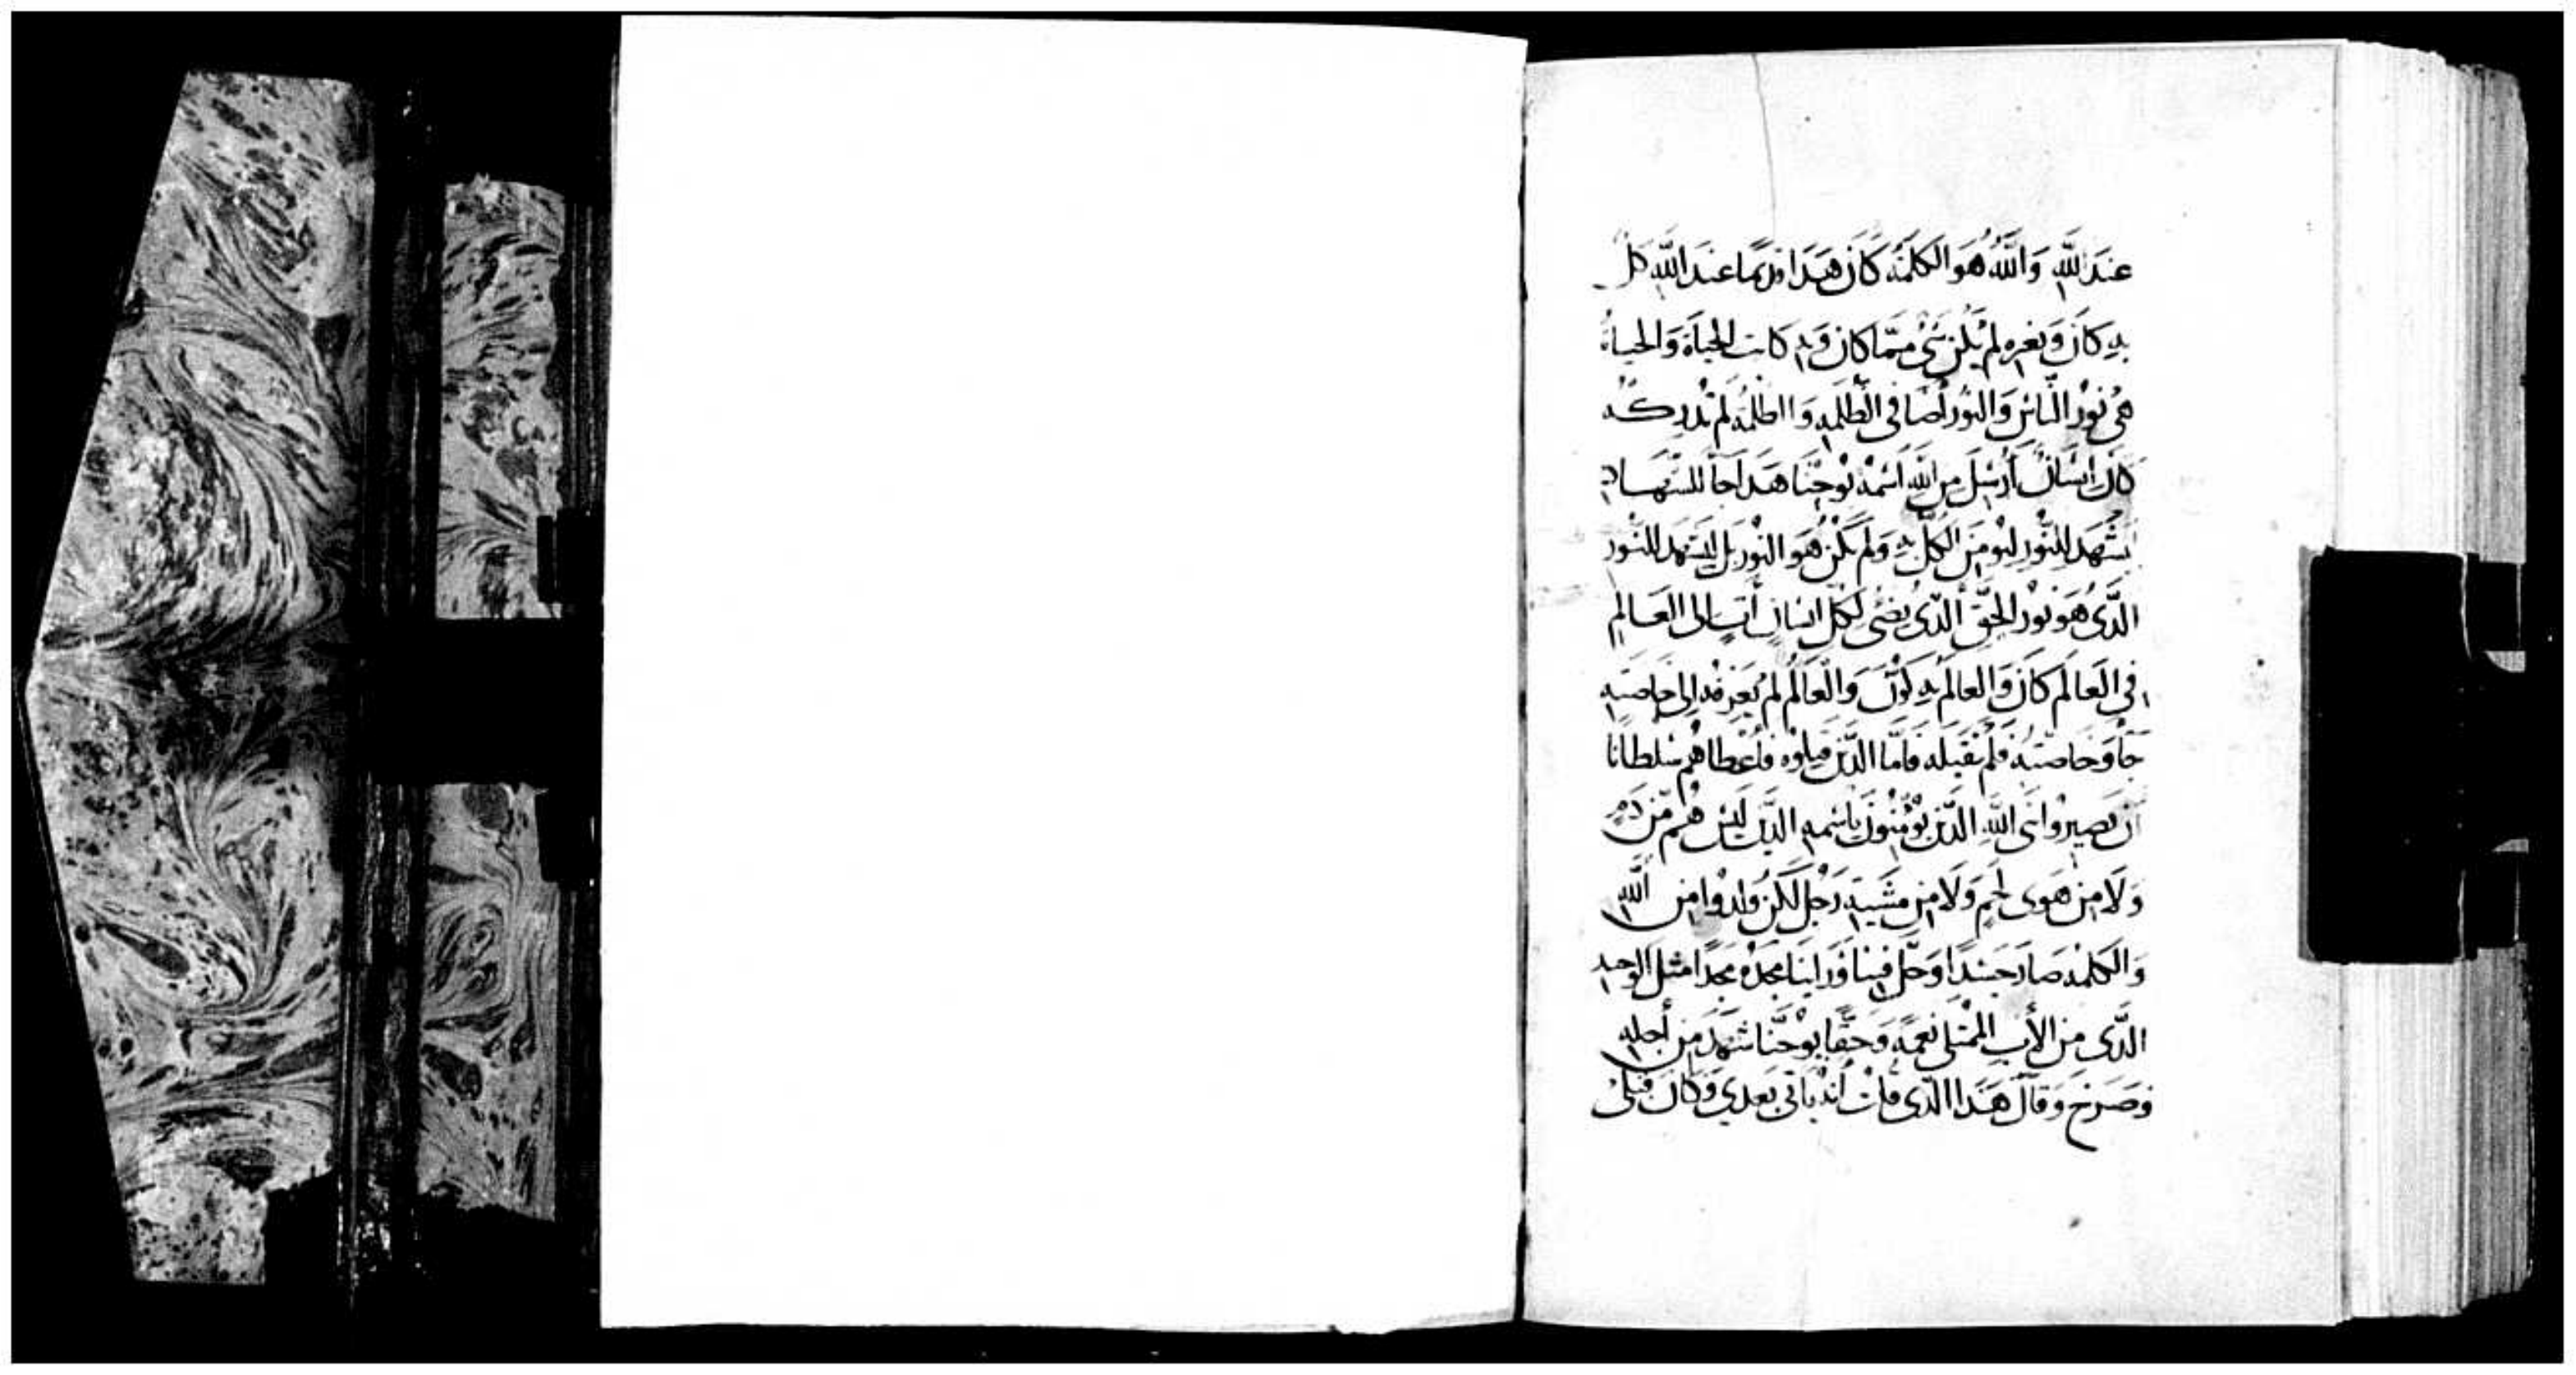 عندَ اللَّهِ وَاللَّهُ هُوَ الكلمَة كَانَ هَذَا قديمًا عندَ اللَّهِ كل
بِهِ كَانَ وَبغيرِه لم يَكن شَىٌ ممّا كان وَبِهِ كانت الحيَاة وَالحياةُ
هىَ نورُ النّاسِ وَالنّورُ أضا فى الظّلمهِ وَالظلمَة لم تُدركهُ
كانَ إنسَانٌ أُرسِلَ مِن اللَّهِ اسْمهُ يُوحَنّا هذا جَا للشهَادهِ
ليَشْهَد للنّورِ ليُومنَ الكلّ بِهِ وَلم يكنْ هُوَ النورَ بل ليَشهَد للنّور
الَّذى هُوَ نورُ الحقِّ الّذى يُضىُ لكلِّ إنسَانٍ أتٍ الى العَالمِ
فى العَالم كانَ وَالعالم بِهِ كُوّنَ وَالعَالَمُ لم يَعرفهُ الى خاصتهِ
جَا وَخاصتهُ فلم تقبَله فَامّا الذّينَ قبلوه فأعْطاهُم سُلطانًا
أن يَصيروا بَنى اللَّهِ الّذينَ يُؤمنُونَ بِاسْمهِ الذينَ ليسَ هُم مّن دَمٍ
وَلَا مِن هَوى لحمٍ وَلَا مِن مَشيةِ رَجلٍ لكن ولدُوا مِن اللَّهِ
وَالكلمة صَارَ جَسَدًا وَحَلَّ فينا وَرَاينَا مجدَهُ مجدًا مثل الوحيدِ
الذّى مِنَ الأبِ الممتلى نعمَةً وَحَقًّا يُوحَنّا شَهدَ مِن أجلهِ
وَصَرخَ وَقالَ هَذَا الّذى قلتُ أنهُ يَاتى بَعدي وَكانَ قبلىُ